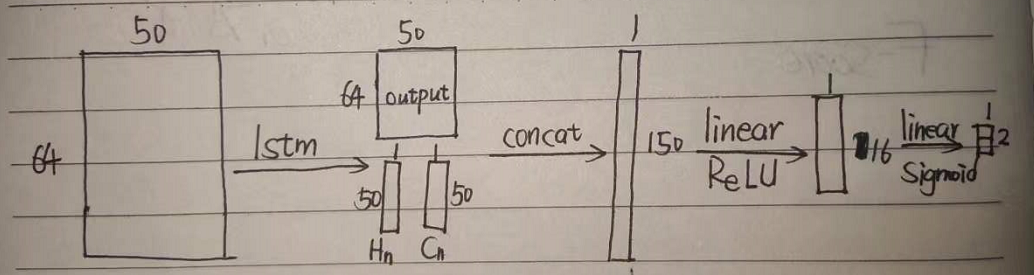 50
64
lstm
50
64
output
1
50
Hn
1
50
Cn
concat
1
150
linear
ReLU
1
16
linear
Sigmoid
1
2